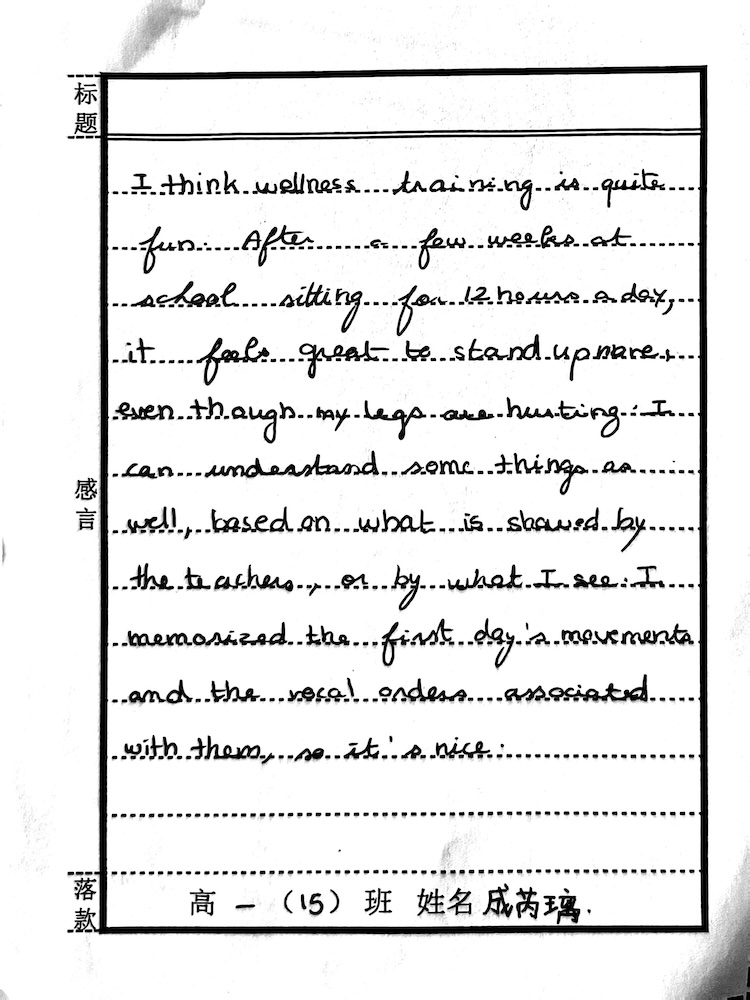 标题
I think wellness training is quite
fun. After a few weeks at
school sitting for 12 hours a day,
it feels great to stand up more,
even though my legs are hurting. I
can understand some things as
感言
well, based on what is showed by
the teachers, or by what I see. I
memorized the first day's movements
and the vocal orders associated
with them, so it's nice.
落款
高一（15）班 姓名 成芮璃.